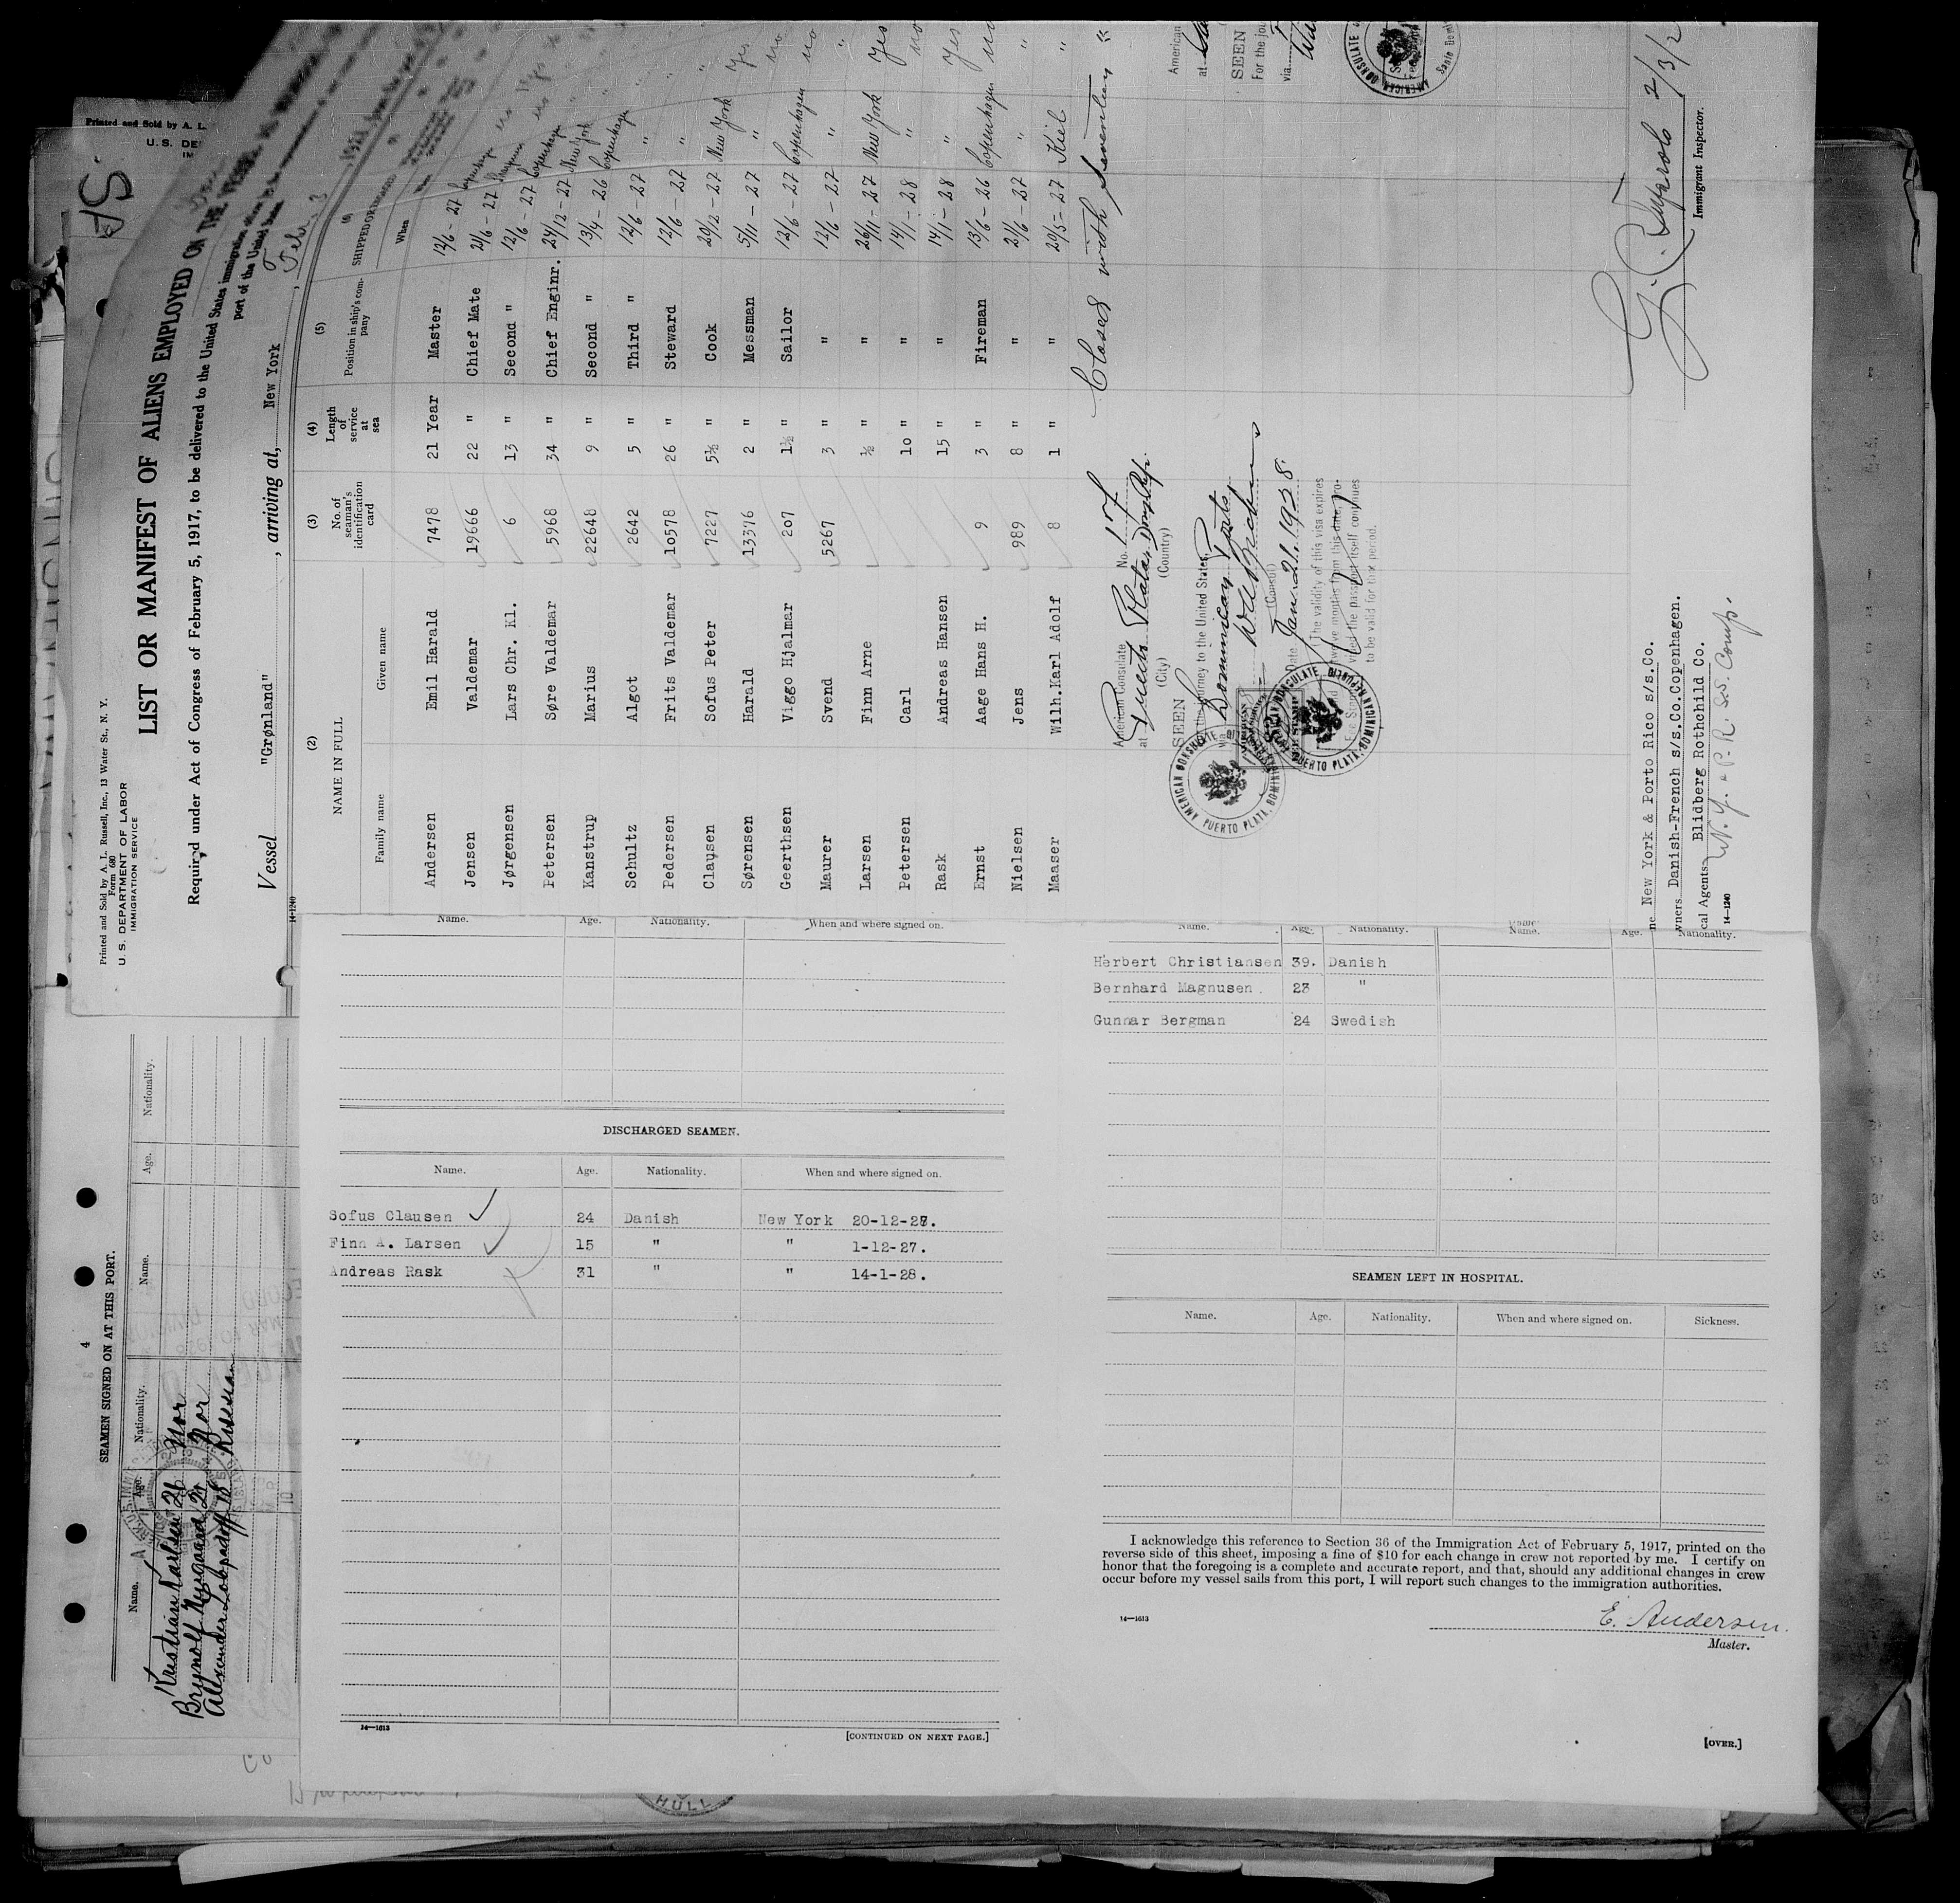 Printed and Sold by A. L. Russell, Inc., 13 Water St., N. Y.
Form 680
U. S. DEPARTMENT OF LABOR
IMMIGRATION SERVICE
LIST OR MANIFEST OF ALIENS EMPLOYED ON THE VESSEL
Required under Act of Congress of February 5, 1917, to be delivered to the United States immigration officer
port of the United States
Vessel "Grønland", arriving at, New York Feb. 3
14-1240
(2) (3) (4) (5) (6)
NAME IN FULL No. of seaman's identification card Length of service at sea Position in ship's company SHIPPED OR ENGAGED
Family name Given name When
Andersen Emil Harald 7478 21 Year Master 12/6 - 27 Copenhagen
Jensen Valdemar 19666 22 " Chief Mate 21/6 - 27
Jørgensen Lars Chr. Kl. 6 13 " Second " 12/6 - 27 Copenhagen
Petersen Søre Valdemar 5968 34 " Chief Enginr. 24/12 - 27 New York
Kanstrup Marius 22648 9 " Second " 13/4 - 26 Copenhagen
Schultz Algot 2642 5 " Third " 12/6 - 27 "
Pedersen Frits Valdemar 10578 26 " Steward 12/6 - 27 " "
Clausen Sofus Peter 7227 5½ " Cook 20/12 - 27 New York Yes
Sørensen Harald 13376 2 " Messman 5/11 - 27 " no
Geerthsen Viggo Hjalmar 207 1½ " Sailor 12/6 - 27 Copenhagen no
Maurer Svend 5267 3 " " 12/6 - 27 " "
Larsen Finn Arne ½ " " 26/11 - 27 New York Yes
Petersen Carl 10 " " 14/1 - 28 " no
Rask Andreas Hansen 15 " " 14/1 - 28 " Yes
Ernst Aage Hans H. 9 3 " Fireman 13/6 - 26 Copenhagen no
Nielsen Jens 989 8 " " 21/6 - 27 " "
Maaser Wilh.Karl Adolf 8 1 " " 20/5 - 27 Kiel "
Closes with seventeen "
American Consulate No. 17
at Puerto Plata, Dom. Rep.
(City) (Country)
SEEN
For the journey to the United States,
via Dominican Ports,
(Consul)
Date Jan. 21. 1928.
The validity of this visa expires
twelve months from this date, pro-
vided the passport itself continues
to be valid for that period.
AMERICAN CONSULATE
PUERTO PLATA, DOMINICAN REPUBLIC
American
at
SEEN
For the jou
via
AMERICAN CONSULATE
Immigrant Inspector.
New York & Porto Rico s/s.Co.
wners Danish-French s/s.Co.Copenhagen.
cal Agents Blidberg Rothchild Co.
N. Y. & P. R. SS. Comp.
14-1240
Printed and Sold by A. L.
U.S. DE
IM
4
SEAMEN SIGNED ON AT THIS PORT.
Name. Age. Nationality. Name. Age. Nationality.
Kristian Karlsen 26 Nor
Brynolf Nygaard 21 Nor
Alexander Lobpadiff 18 Russian
Name. Age. Nationality. When and where signed on.
DISCHARGED SEAMEN.
Name. Age. Nationality. When and where signed on.
Sofus Clausen 24 Danish New York 20-12-27.
Finn A. Larsen 15 " " 1-12-27.
Andreas Rask 31 " " 14-1-28.
14—1613
[CONTINUED ON NEXT PAGE.]
Name. Age. Nationality. Name. Age. Nationality.
Herbert Christiansen 39. Danish
Bernhard Magnusen 23 "
Gunnar Bergman 24 Swedish
SEAMEN LEFT IN HOSPITAL.
Name. Age. Nationality. When and where signed on. Sickness.
I acknowledge this reference to Section 36 of the Immigration Act of February 5, 1917, printed on the
reverse side of this sheet, imposing a fine of $10 for each change in crew not reported by me. I certify on
honor that the foregoing is a complete and accurate report, and that, should any additional changes in crew
occur before my vessel sails from this port, I will report such changes to the immigration authorities.
14—1613
E. Andersen.
Master.
[OVER.]
HULL